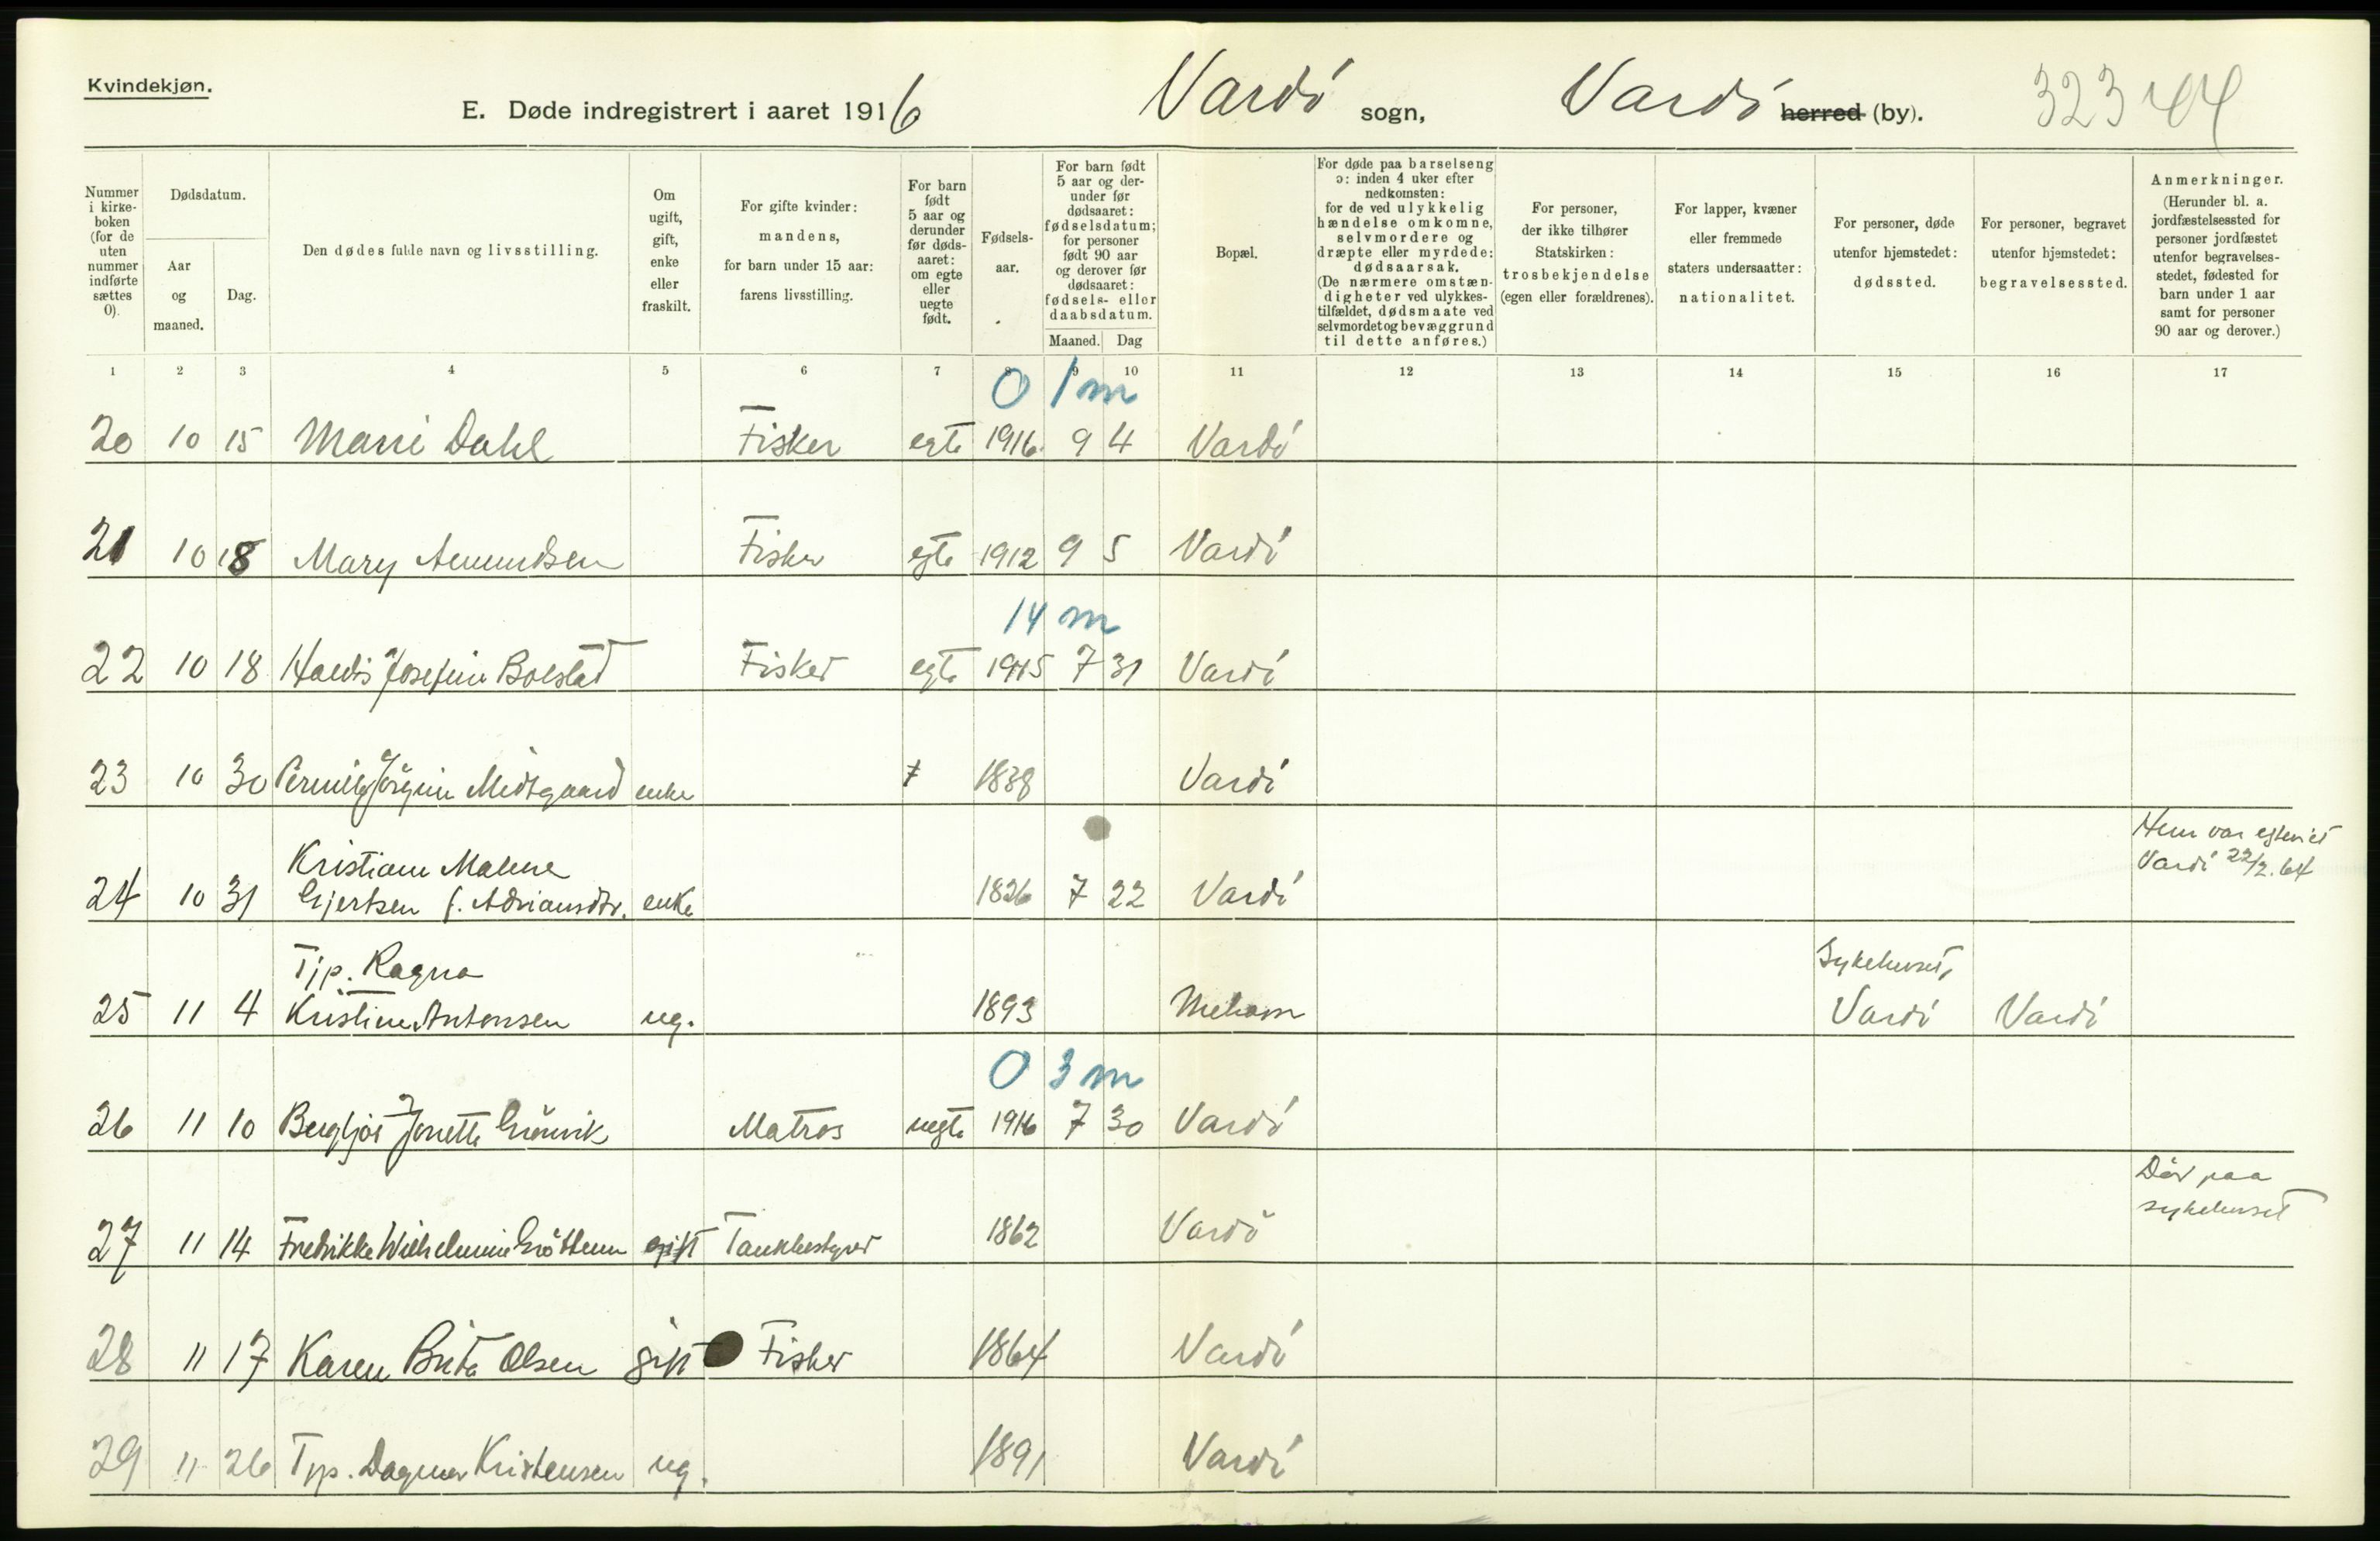 Kvindekjøn.
E. Døde indregistrert i aaret 1916 Vardö sogn, Vardö herred (by). 323 44
Nummer i kirkeboken (for de uten nummer indførte sættes 0).
Dødsdatum.
Aar og maaned.
Dag.
Den dødes fulde navn og livsstilling.
Om ugift, gift, enke eller fraskilt.
For gifte kvinder: mandens, for barn under 15 aar: farens livsstilling.
For barn født 5 aar og derunder før dødsaaret: om egte eller uegte født.
Fødselsaar.
For barn født 5 aar og derunder før dødsaaret: fødselsdatum; for personer født 90 aar og derover før dødsaaret: fødsels- eller daabsdatum.
Maaned. Dag
Bopæl.
For døde paa barselseng ɔ: inden 4 uker efter nedkomsten: for de ved ulykkelig hændelse omkomne, selvmordere og dræpte eller myrdede: dødsaarsak. (De nærmere omstændigheter ved ulykkestilfældet, dødsmaate ved selvmordet og bevæggrund til dette anføres.)
For personer, der ikke tilhører Statskirken: trosbekjendelse (egen eller forældrenes).
For lapper, kvæner eller fremmede staters undersaatter: nationalitet.
For personer, døde utenfor hjemstedet: dødssted.
For personer, begravet utenfor hjemstedet: begravelsessted.
Anmerkninger. (Herunder bl. a. jordfæstelsessted for personer jordfæstet utenfor begravelsesstedet, fødested for barn under 1 aar samt for personer 90 aar og derover.)
1 2 3 4 5 6 7 8 9 10 11 12 13 14 15 16 17
0 1 m
20 10 15 Marie Dahl Fisker egte 1916 9 4 Vardö
21 10 18 Mary Amundsen Fisker egte 1912 9 5 Vardö
14 m
22 10 18 Haldis Josefine Bolstad Fisker egte 1915 7 31 Vardö
23 10 30 Jörgine Midtgaard enke 1838 Vardö
Kristiane Malene Hun var egteviet
Vardö 22/2. 64
24 10 31 Gjertsen f. Adriansdtr. enke 1826 7 22 Vardö
Tjp. Ragna Sykehuset,
25 11 4 Kristine Antonsen ug. 1893 Mehavn Vardö Vardö
0 3 m
26 11 10 Bergljot Jonette Grönvik Matros uegte 1916 7 30 Vardö
Död paa
sykehuset
27 11 14 Fredrikke Wilhelmine gift Tankbestyrer 1862 Vardö
28 11 17 Karen Brita Olsen gift Fisker 1864 Vardö
29 11 26 Tjp. Dagmar Kristensen ug. 1891 Vardö